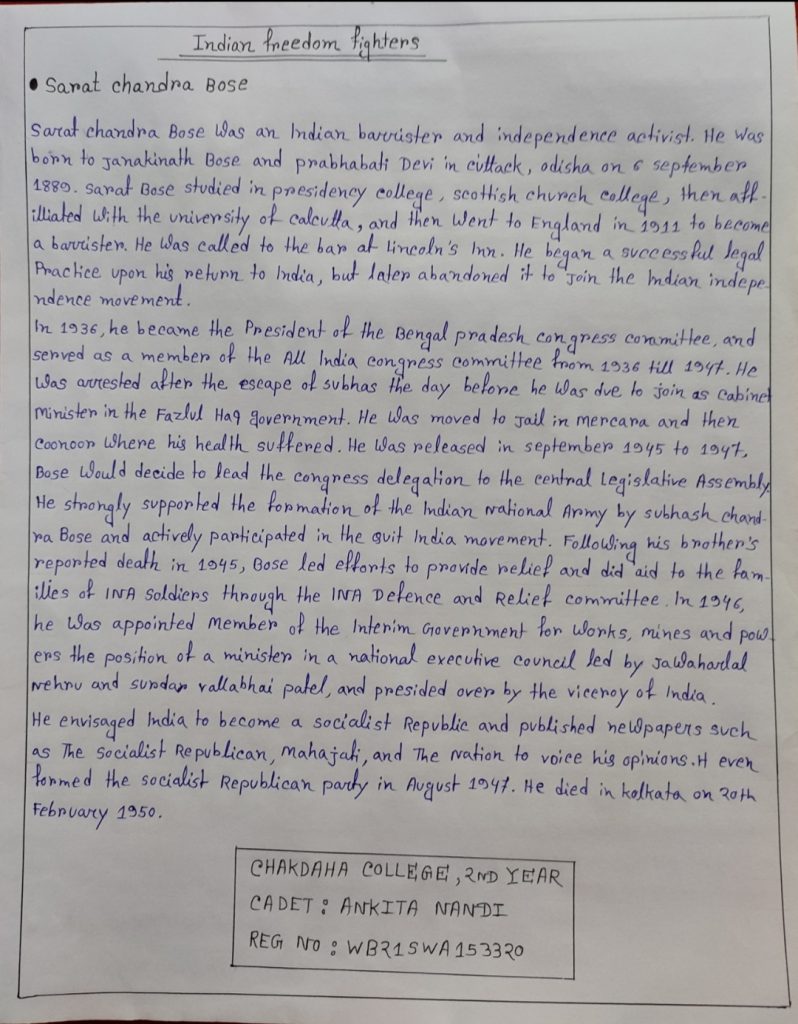 Indian freedom fighters
• Sarat chandra Bose
Sarat chandra Bose was an Indian barrister and independence activist. He was
born to Janakinath Bose and prabhabati Devi in cuttack, odisha on 6 september
1889. Sarat Bose studied in presidency college, scottish church college, then aff-
illiated with the university of calcutta, and then went to England in 1911 to become
a barrister. He was called to the bar at lincoln's Inn. He began a successful legal
Practice upon his return to India, but later abandoned it to join the Indian indepe-
ndence movement.
In 1936, he became the President of the Bengal pradesh congress committee, and
served as a member of the All India congress committee from 1936 till 1947. He
was arrested after the escape of subhas the day before he was due to join as cabinet
minister in the Fazlul Haq government. He was moved to jail in mercara and then
coonoor where his health suffered. He was released in september 1945 to 1947,
Bose would decide to lead the congress delegation to the central Legislative Assembly
He strongly supported the formation of the Indian National Army by subhash chand-
ra Bose and actively participated in the Quit India movement. Following his brother's
reported death in 1945, Bose led efforts to provide relief and did aid to the fam-
ilies of INA soldiers through the INA Defence and Relief committee. In 1946,
he was appointed Member of the Interim Government for works, mines and pow
ers the position of a minister in a national executive council led by Jawaharlal
Nehru and surdar vallabhai patel, and presided over by the viceroy of India.
He envisaged India to become a socialist Republic and published newpapers such
as The Socialist Republican, Mahajati, and The Nation to voice his opinions. H even
formed the socialist Republican party in August 1947. He died in kolkata on 20th
February 1950.
CHAKDAHA COLLEGE, 2ND YEAR
CADET : ANKITA NANDI
REG NO : WB21SWA153320